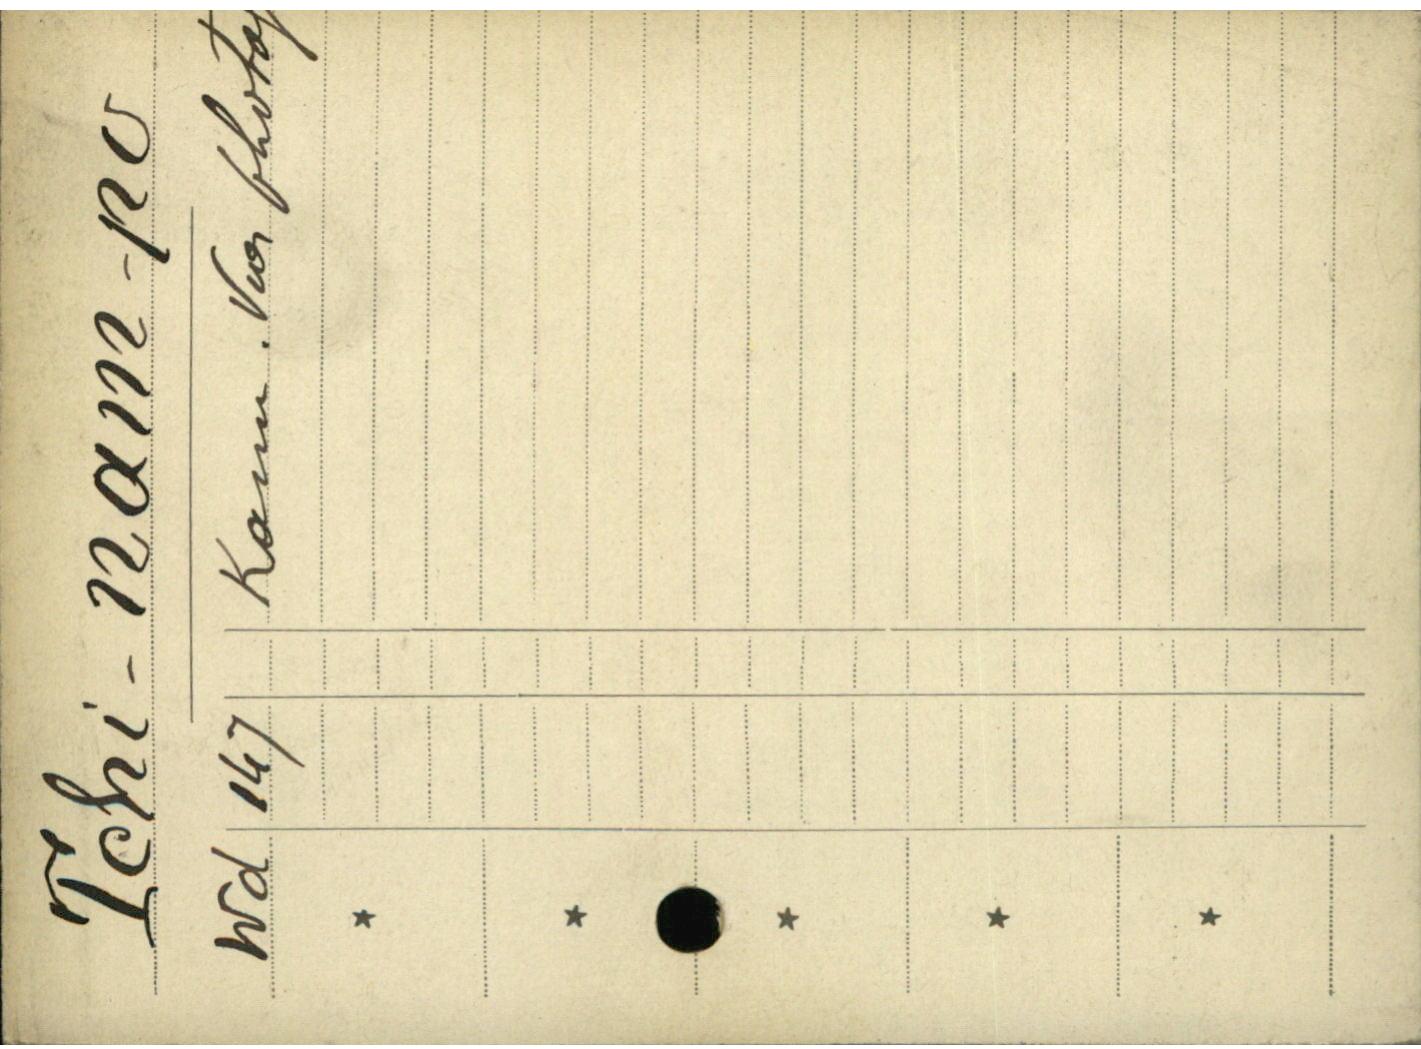 Tchi-nam-po
Wd 147 Kann. Vues photog